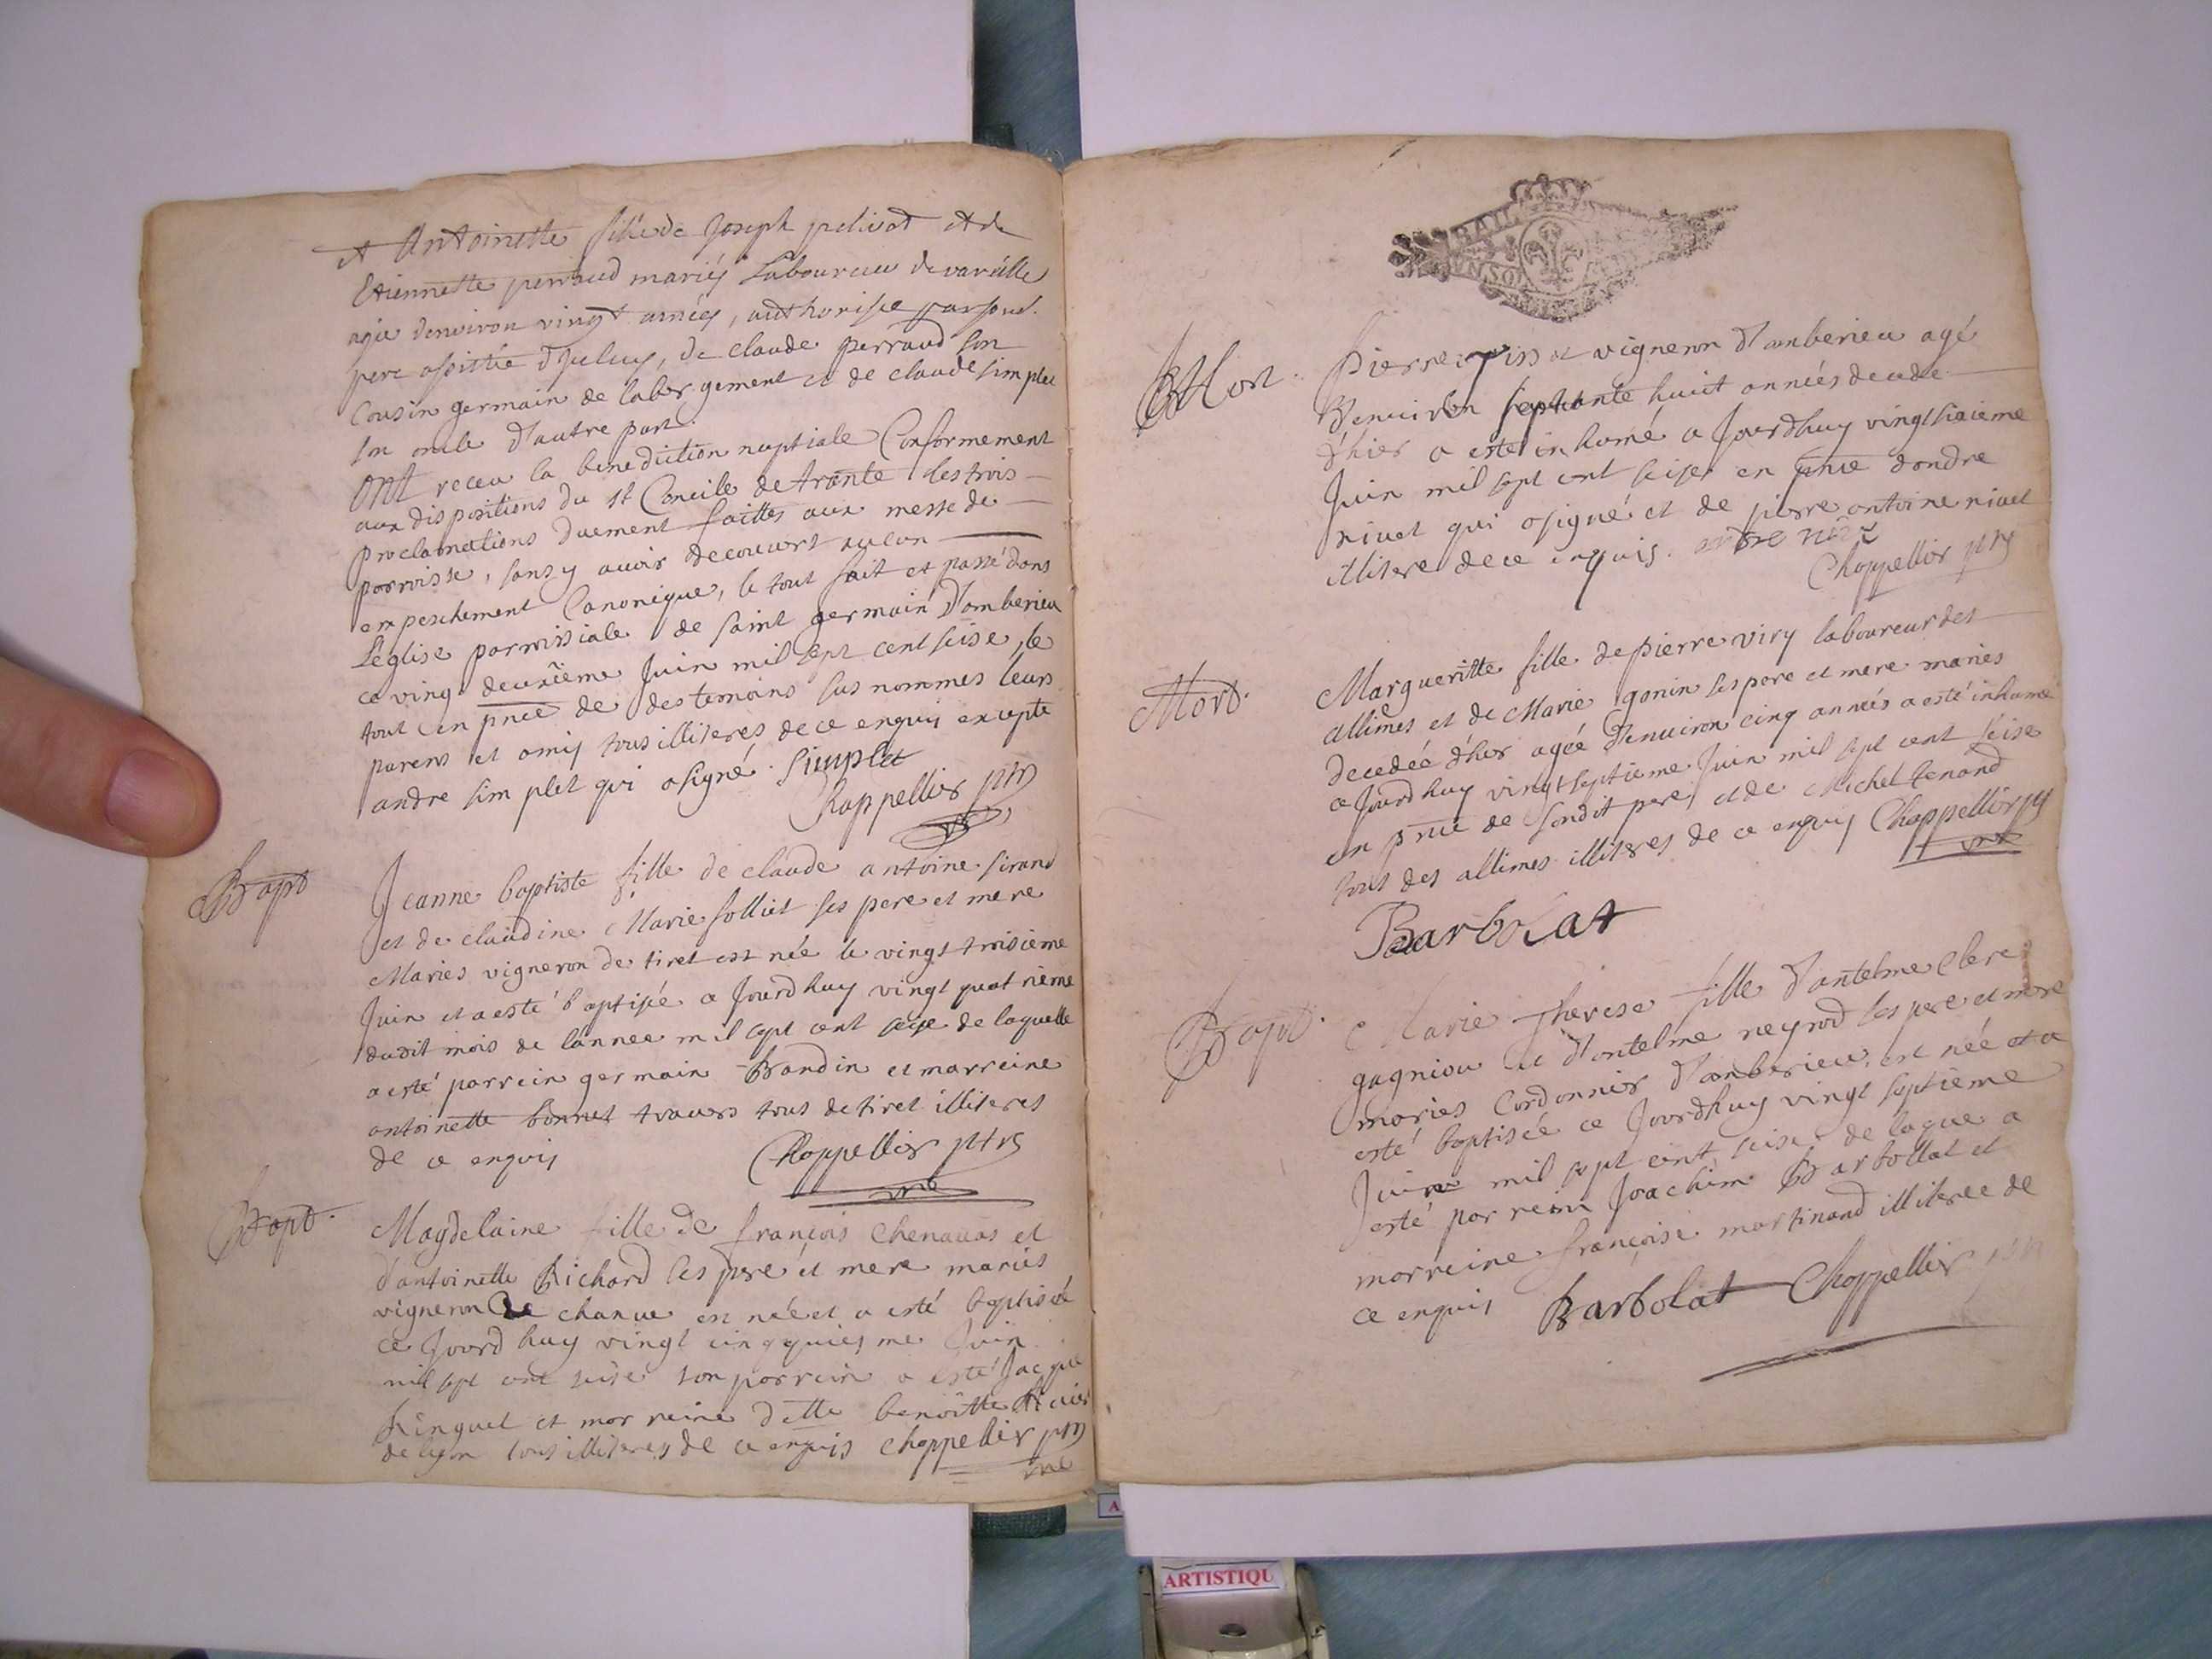 et Antoinette fille de Joseph pelisot et de
Etiennette perraud mariés Laboureur de vareille
agée denviron vingt années, authorisée par son
pere assistée d'iceluy, de claude perraud son
Cousin germain de labergement et de claude simplet
son oncle d'autre part.
Ont receu la benediction nuptiale Conformement
aux dispositions du st Concile de trante les trois
proclamations duement faittes aux messe de
parroisse, sans y avoir decouvert aucun
empeschement Canonique, le tout fait et passé dans
l'eglise parroissiale de saint germain d'amberieu
ce vingt deuxième Juin mil sept cent seise, le
tout en pnce de des temoins sus nommés leurs
parens et amis tous illiteres de ce enquis excepté
andre simplet qui a signé. Simplet
Chappellier ptre
Bapt
Jeanne baptiste fille de claude antoine sirand
et de claudine Marie folliet ses pere et mere
Mariés vigneron de tiret est née le vingt troisieme
Juin et a esté baptisée ce Jourdhuy vingt quatrieme
dudit mois de l'année mil sept cent seise de laquelle
a esté parrein germain Bandin et marreine
antoinette bonnet travers tous de tiret illiteres
de ce enquis Chappellier ptre
Bapt.
Magdelaine fille de françois Chenavas et
d'antoinette Richard ses pere et mere mariés
vigneron de chanve est née et a esté baptisée
ce Jourdhuy vingt cinqquiesme Juin
mil sept cent seise son parrein a esté Jacque
Ringuet et marreine dette benoitte
de lyon tous illiteres de ce enquis Chappellier ptre
BAIL
VN SOL
Mort.
Pierre vigneron d'amberieu agé
D'environ septante huict années decedé
d'hier a esté inhumé ce Jourdhuy vingt sixieme
Juin mil sept cent seise en pnce dandre
nivet qui a signé et de pierre antoine nivet
illitere de ce enquis. andre nivet
Chappellier ptre
Mort.
Margueritte fille de pierre viry laboureur des
allimes et de Marie gonin ses pere et mere mariés
decedée d'hier agée d'environ cinq années a esté inhumée
ce Jourdhuy vingt septieme Juin mil sept cent seise
en pnce de sondit pere, et de Michel tenand
tous des allimes illiteres de ce enquis Chappellier ptre
Barbolat
Bapt.
Marie Therese fille d'antelme Clerc
gagniou et d'antelme neyrod ses pere et mere
mariés Cordonnier d'amberieu, est née et a
esté baptisée ce Jourdhuy vingt septieme
Juin mil sept cent seise de laque a
esté parrein Joachim Barbollat et
marreine françoise martinand illiteree de
ce enquis Barbolat Chappellier ptre
ARTISTIQU